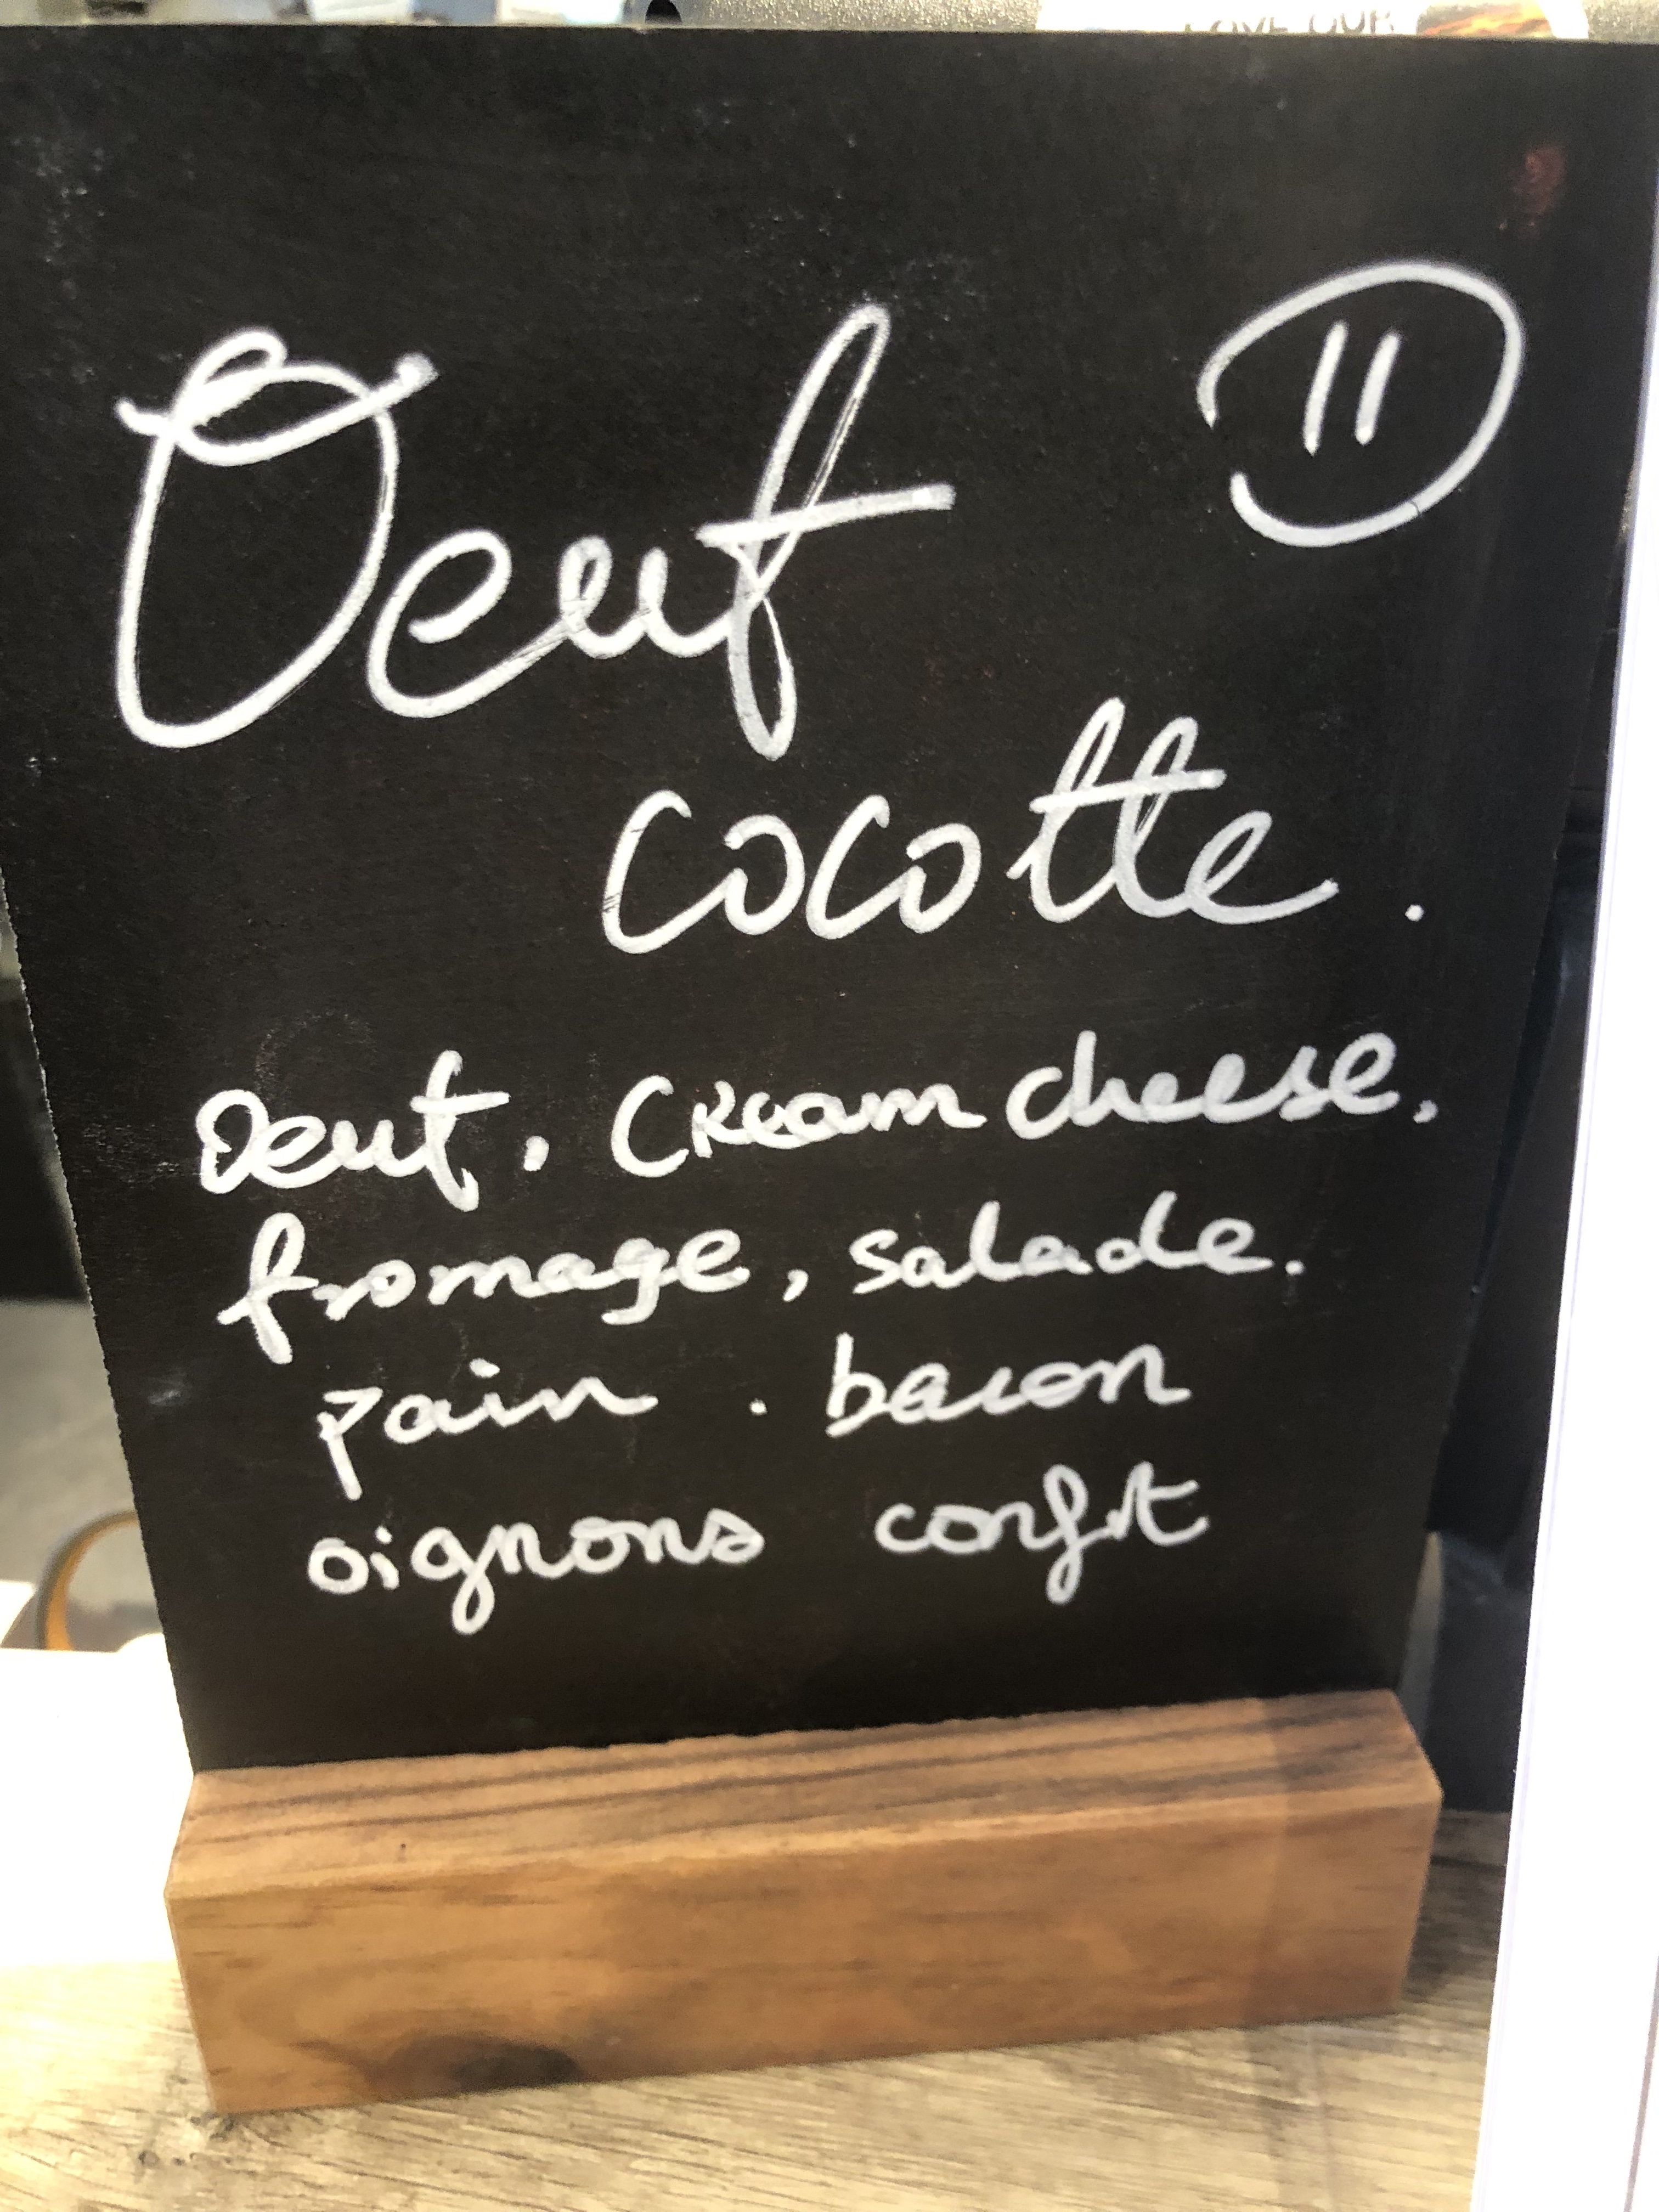 LOVE OUR
Oeuf
cocotte.
Oeuf, Cream cheese,
fromage, salade.
pain . bacon
oignons confit